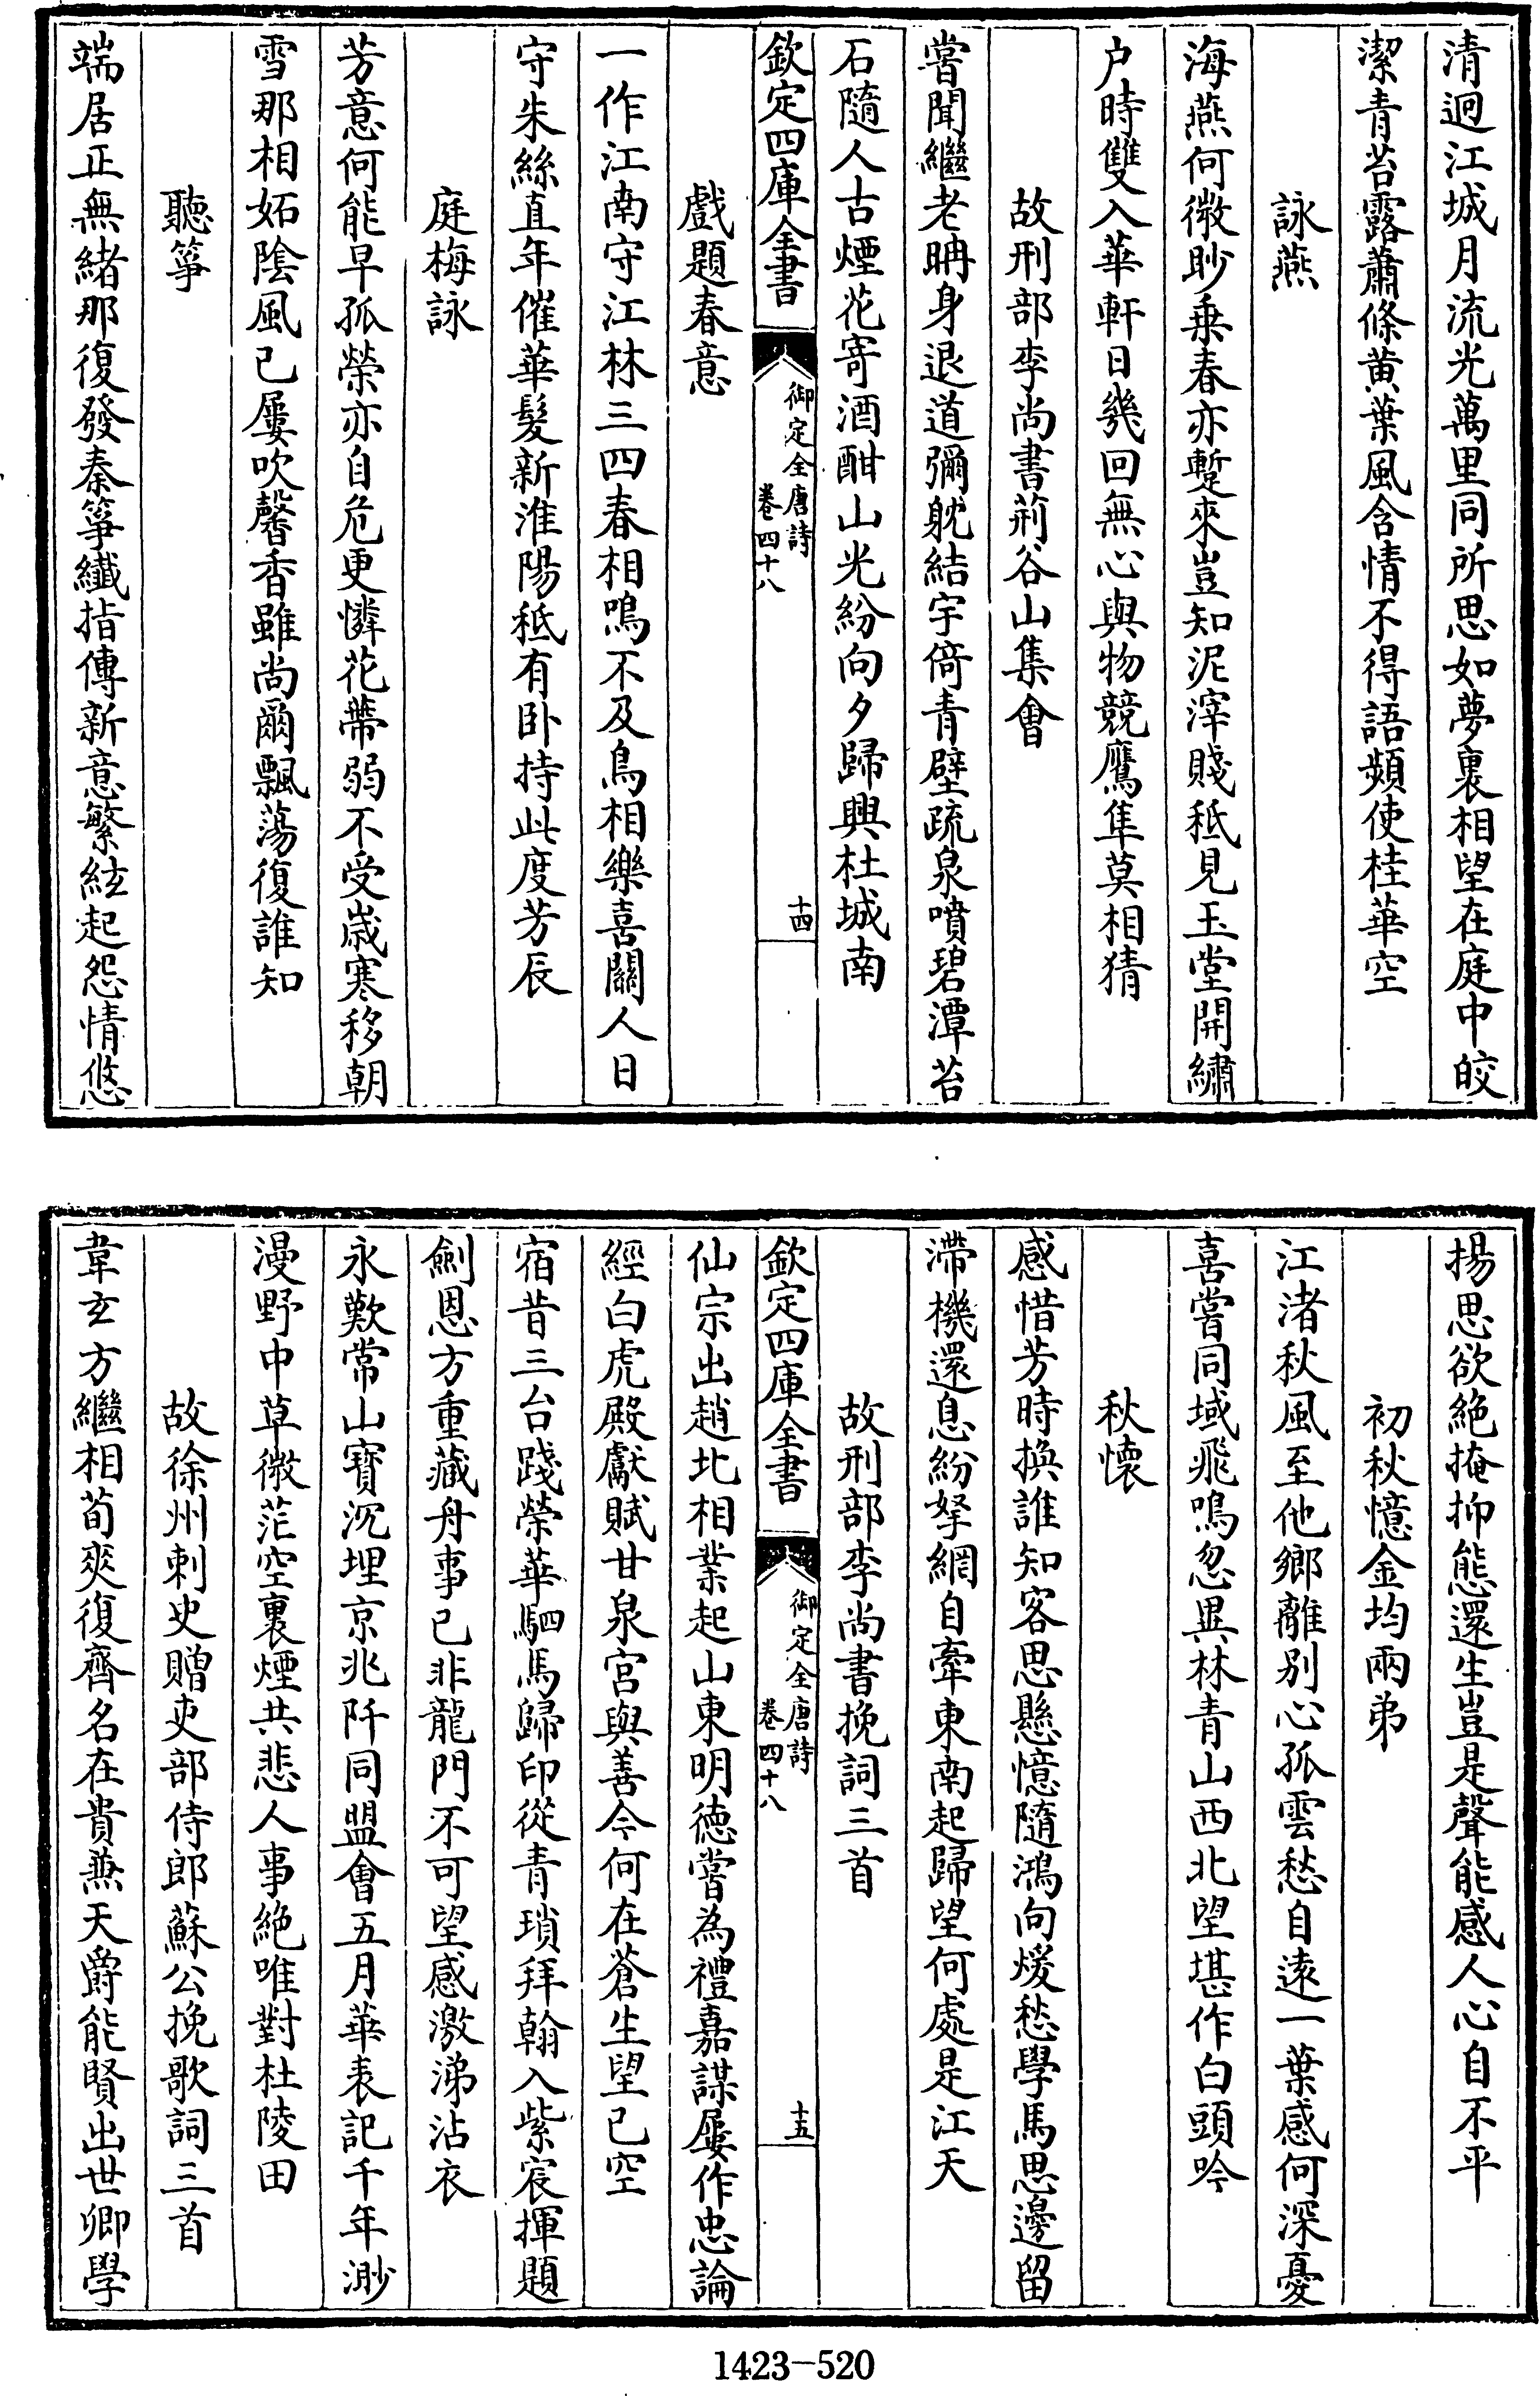 清迥江城月流光萬里同所思如夢裏相望在庭中皎
潔青苔露蕭條黄葉風含情不得語頻使桂華空
詠燕
海燕何微眇乗春亦蹔來豈知泥滓賤秪見玉堂開繡
户時雙入華軒日幾回無心與物競鷹隼莫相猜
故刑部李尚書荊谷山集會
嘗聞繼老聃身退道彌躭結宇倚青壁疏泉噴碧潭苔
石隨人古煙花寄酒酣山光紛向夕歸興杜城南
欽定四庫全書
御定全唐詩
卷四十八
十四
戲題春意
一作江南守江林三四春相鳴不及鳥相樂喜關人日
守朱絲直年催華髮新淮陽秪有卧持此度芳辰
庭梅詠
芳意何能早孤榮亦自危更憐花蔕弱不受歲寒移朝
雪那相妬陰風已屢吹馨香雖尚爾飄蕩復誰知
聽箏
端居正無緒那復發秦箏纖指傳新意繁絃起怨情悠
揚思欲絶掩抑態還生豈是聲能感人心自不平
初秋憶金均兩弟
江渚秋風至他鄉離别心孤雲愁自逺一葉感何深憂
喜嘗同域飛鳴忽異林青山西北望堪作白頭吟
秋懷
感惜芳時换誰知客思懸憶隨鴻向煖愁學馬思邊留
滯機還息紛拏網自牽東南起歸望何處是江天
故刑部李尚書挽詞三首
欽定四庫全書
御定全唐詩
卷四十八
十五
仙宗出趙北相業起山東明德嘗為禮嘉謀屢作忠論
經白虎殿獻賦甘泉宫與善今何在蒼生望已空
宿昔三台踐榮華駟馬歸印從青瑣拜翰入紫宸揮題
劍恩方重藏舟事已非龍門不可望感激涕沾衣
永歎常山寶沉埋京兆阡同盟會五月華表記千年渺
漫野中草微茫空裏煙共悲人事絶唯對杜陵田
故徐州刺史贈吏部侍郎蘇公挽歌詞三首
韋玄方繼相荀爽復齊名在貴兼天爵能賢出世卿學
1423-520